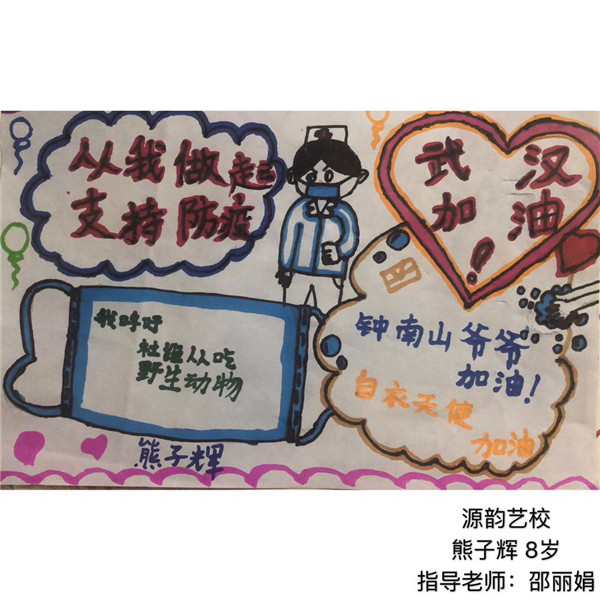 从我做起
支持防疫
武汉
加油
！
我呼吁
杜绝从吃
野生动物
熊子辉
钟南山爷爷
加油！
白衣天使
加油
源韵艺校
熊子辉 8岁
指导老师：邵丽娟